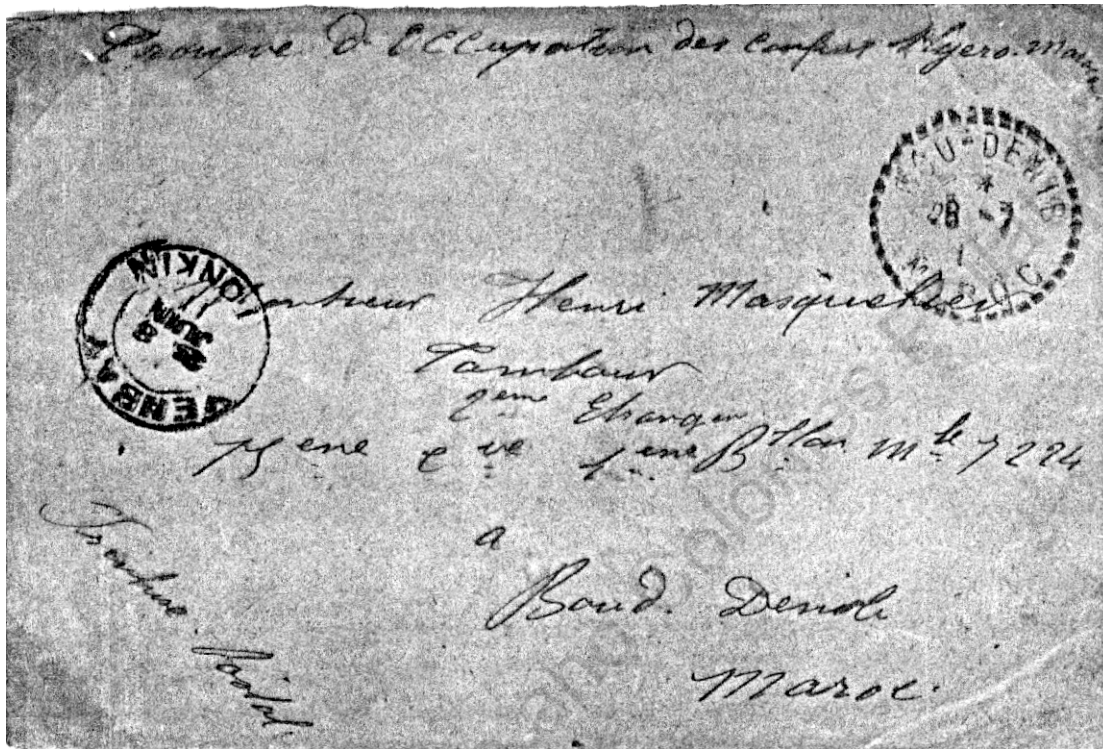 Troupe d'Occupation des Confins Algero-Maroc
BOU-DENIB
*
28 -7
MAROC
YENBAY
TONKIN
8
JUIN
11
Monsieur Henri Masquelier
Tambour
2eme Etranger
15 eme Cie 4eme Btllon Mle 7224
a
Boud. Denib
Maroc.
Franchise Postal